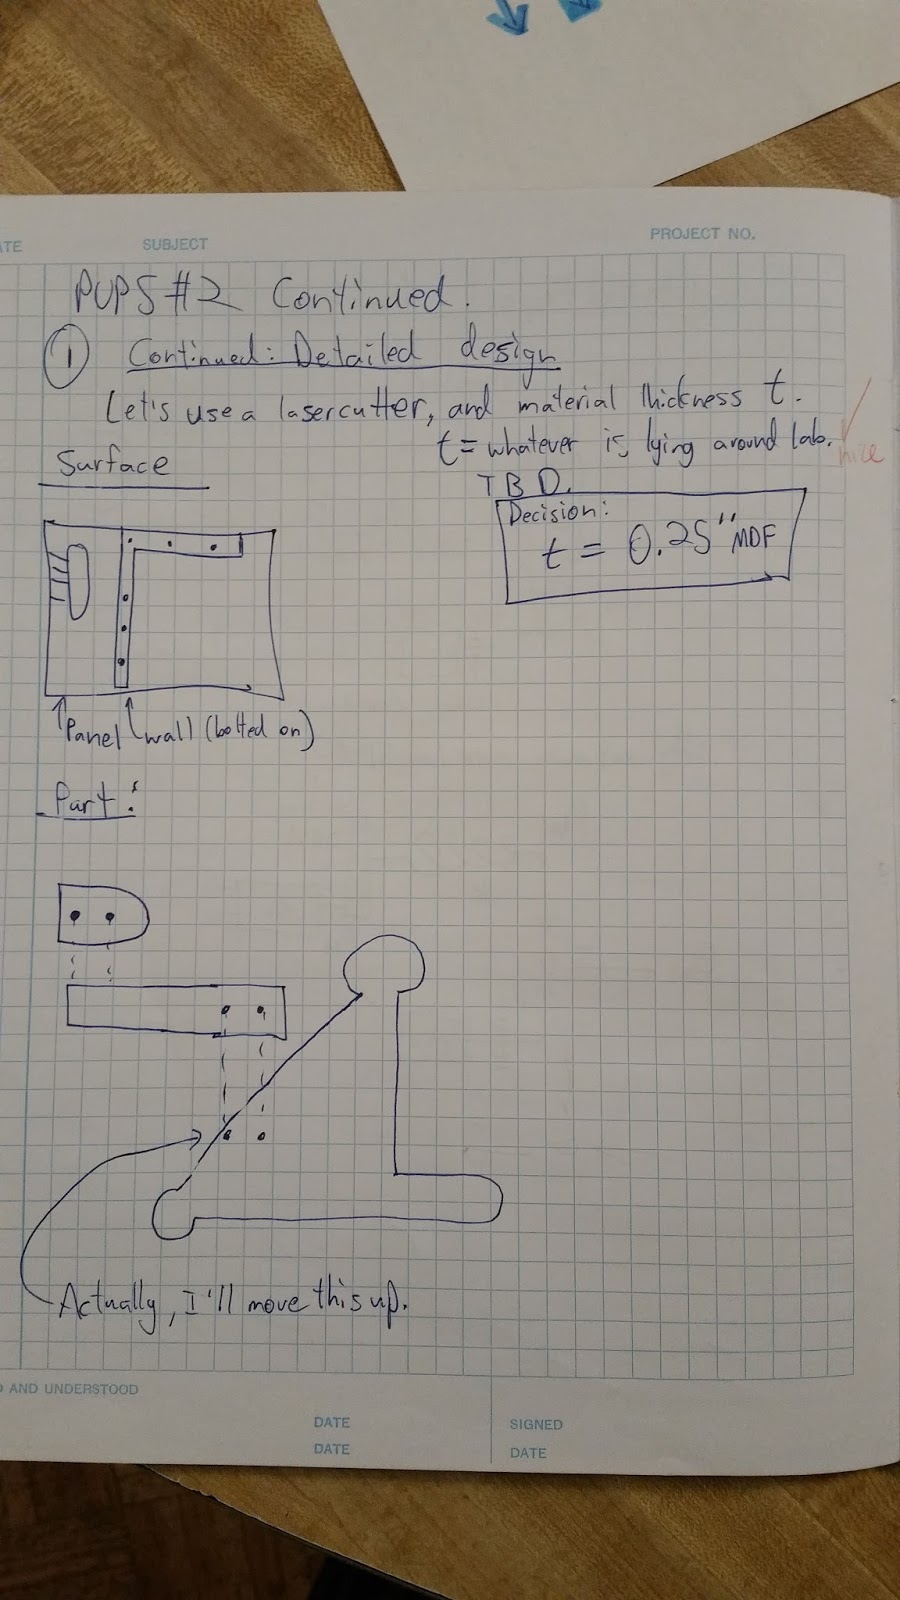 ATE
SUBJECT
PROJECT NO.
PUPS #2 Continued.
① Continued: Detailed design
Let's use a lasercutter, and material thickness t.
t = whatever is lying around lab.
nice
TBD.
Surface
Decision:
t = 0.25" MDF
Panel wall (bolted on)
Part:
Actually, I'll move this up.
D AND UNDERSTOOD
DATE
SIGNED
DATE
DATE